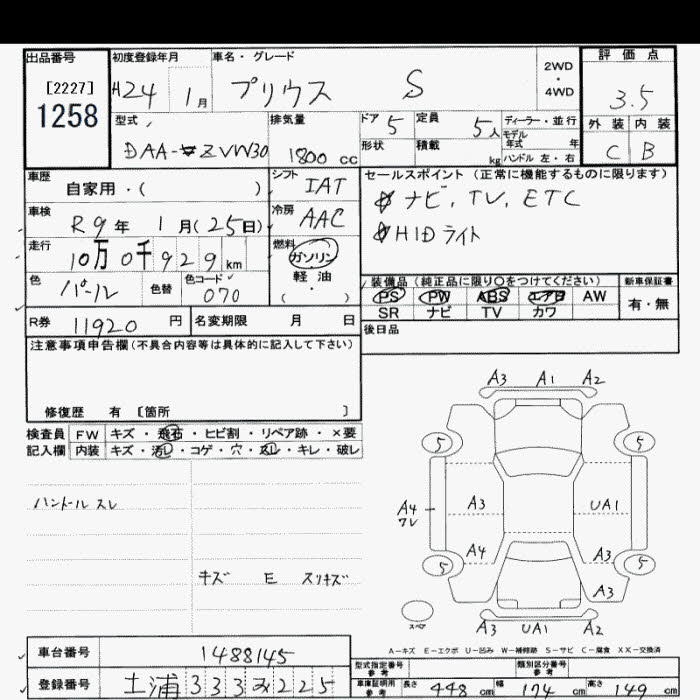 出品番号 [2227] 1258
初度登録年月 H24 1月
車名・グレード プリウス S
2WD・4WD
評価点 3.5
外装 内装
C B
型式 DAA-ZVW30
排気量 1800cc
ドア 5 定員 5人
形状 積載 kg
ディーラー・並行
モデル年式 年
ハンドル 左・右
車歴 自家用・( )
シフト IAT
セールスポイント (正常に機能するものに限ります)
ナビ, TV, ETC
HIDライト
車検 R9年 1月(25日)
冷房 AAC
走行 10万0千929km
燃料 ガソリン 軽油 ( ・ )
色 パール 色替 色コード 070
装備品 (純正品に限り○をつけてください)
PS PW ABS エアB AW
SR ナビ TV カワ
新車保証書 有・無
R券 11920円 名変期限 月 日
後日品
注意事項申告欄(不具合内容等は具体的に記入して下さい)
修復歴 有 [箇所 ]
検査員 FW キズ・飛石・ヒビ割・リペア跡・×要
記入欄 内装 キズ・汚レ・コゲ・穴・スレ・キレ・破レ
ハンドル スレ
キズ E スリキズ
A3 A1 A2
5 5
A4 ワレ A3 UA1
A4 A3
5 5
A3
スペア
A3 UA1 A2
A-キズ E-エクボ U-凹み W-補修跡 S-サビ C-腐食 XX-交換済
車台番号 1488145
登録番号 土浦333み225
型式指定番号 参考 類別区分番号 参考
車庫証明用 参考 長さ 448cm 幅 174cm 高さ 149cm